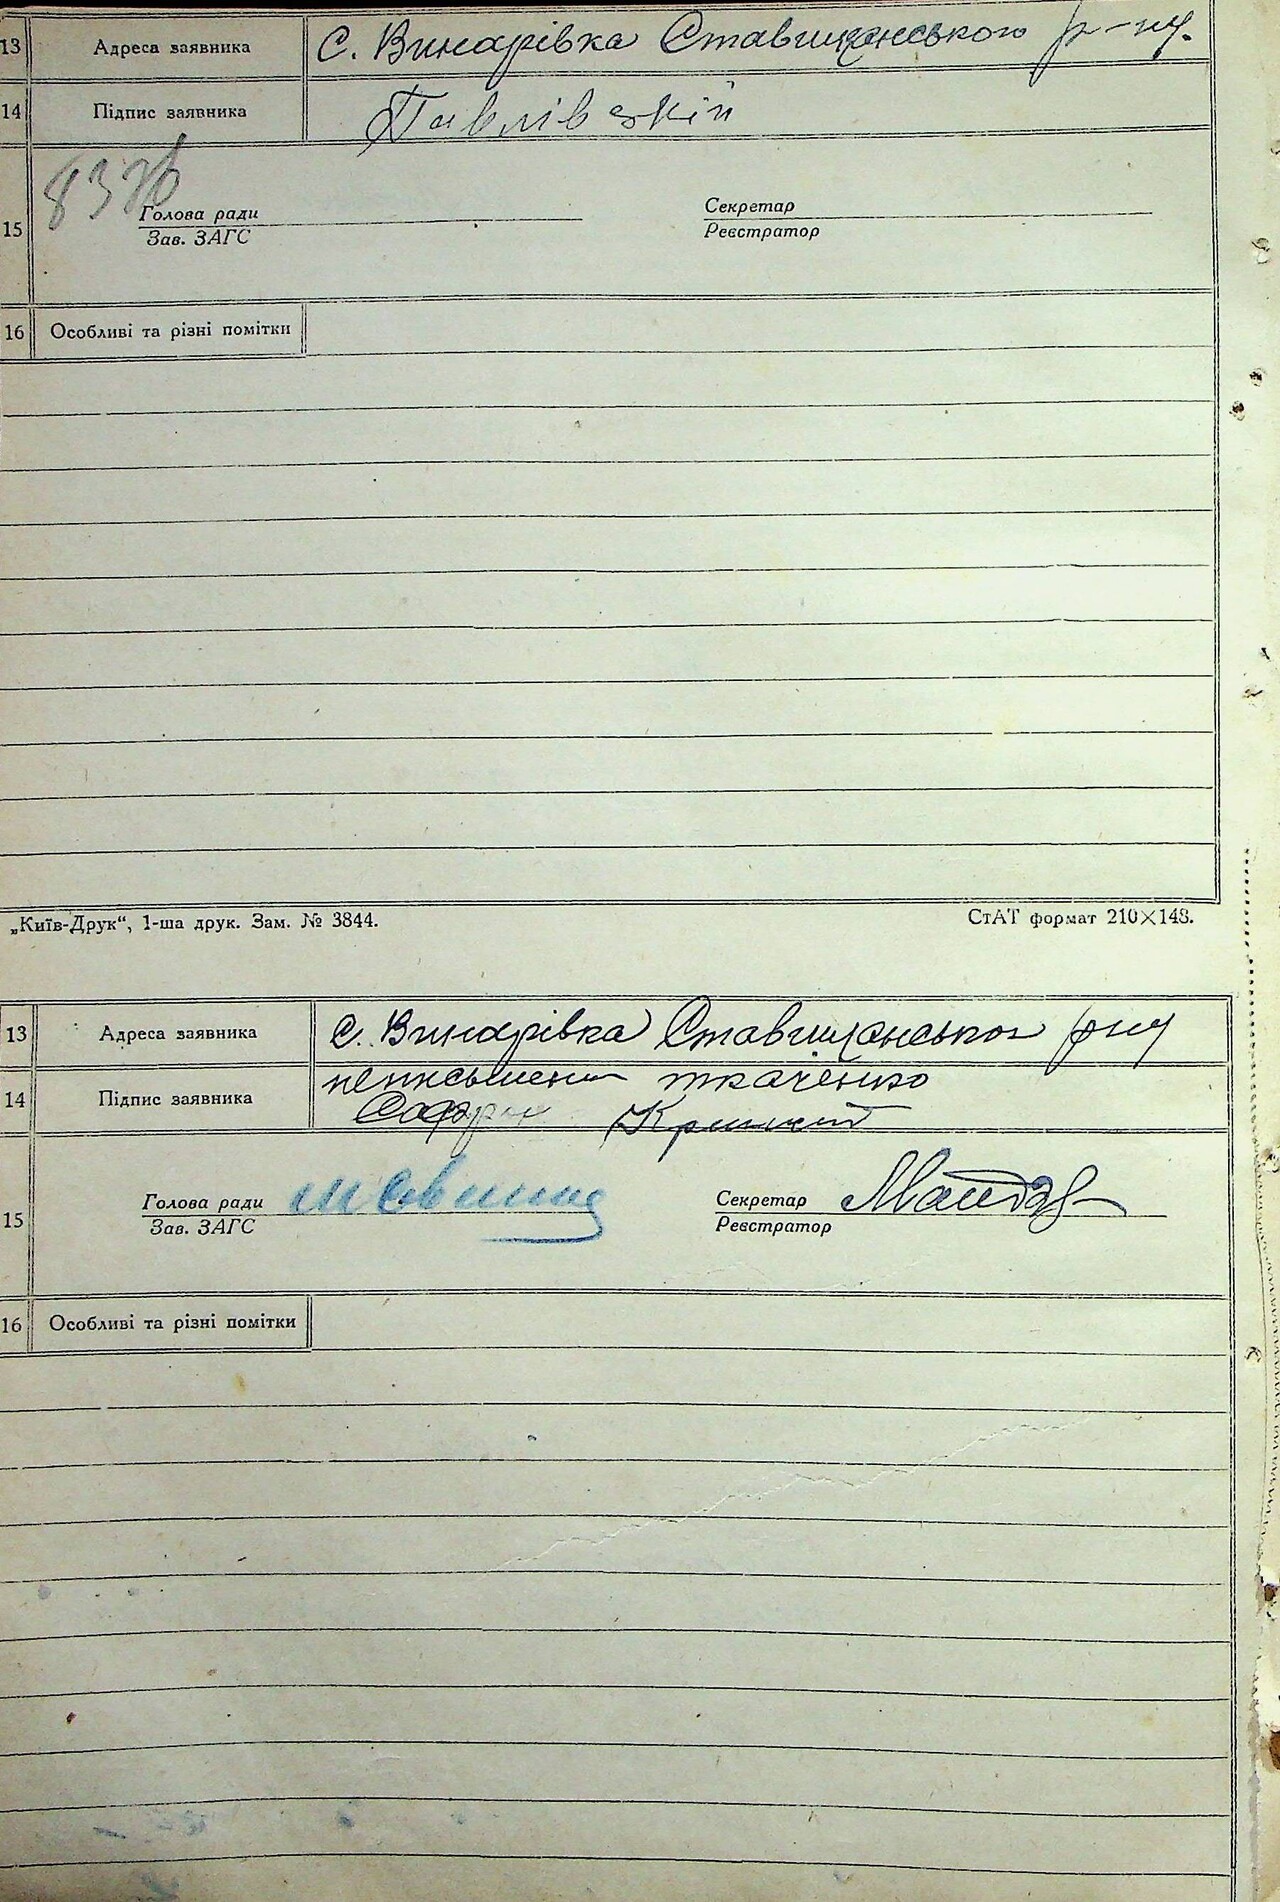 13 Адреса заявника С. Винарівка Ставищанського р-ну.
14 Підпис заявника Павлівский
837в
15 Голова ради Секретар
Зав. ЗАГС Реєстратор
16 Особливі та різні помітки
„Київ-Друк“, 1-ша друк. Зам. № 3844. СтАТ формат 210×148.
13 Адреса заявника С. Винарівка Ставищанського рну
14 Підпис заявника неписьмени ткаченко
15 Голова ради Секретар
Зав. ЗАГС Реєстратор
16 Особливі та різні помітки